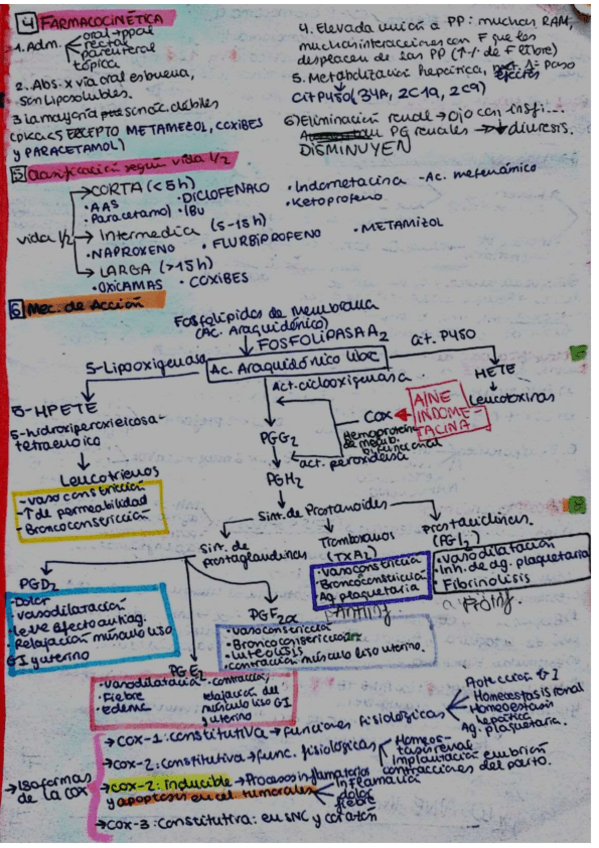 4 FARMACOCINÉTICA
1. Adm.
oral → ppal
rectal
parenteral
tópica
2. Abs. x vía oral es buena,
son Liposolubles.
3 la mayoría son ac. débiles
EXCEPTO METAMIZOL, COXIBES
y PARACETAMOL)
4. Elevada unión a PP: muchas RAM,
muchas interacciones con F que los
desplacen de las PP (↑% de F libre)
5. Metabolización hepática,
CitP450 (3A4, 2C19, 2C9)
6) Eliminación renal → ojo con insf...
PG renales → ↓ diuresis.
DISMINUYEN
5 Clasificación según vida 1/2
vida 1/2
→ CORTA (<5h)
• AAS
• Paracetamol
• DICLOFENALO
• IBU
• Indometacina
- Ac. mefenámico
• Ketoprofeno
→ Intermedia (5-15h)
• NAPROXENO
• FLURBIPROFENO
• METAMIZOL
→ LARGA (>15h)
• OXICAMAS
• COXIBES
6 Mec. de Acción
Fosfolípidos de Membrana
(Ac. Araquidónico)
FOSFOLIPASA A2
5-Lipooxigenasa
Ac. Araquidónico libre
cit. P450
HETE
Leucotoxinas
Act. ciclooxigenasa
5-HPETE
5-hidroxiperoxieicosa-
tetraenoico
Leucotrienos
- vasoconstricción
- ↑ de permeabilidad
- Broncoconstricción
COX
AINE
INDOME-
TACINA
Hemoproteína
de memb.
bifuncional
PGG2
act. peroxidasa
PGH2
Sint. de Prostanoides
Sint. de
prostaglandinas
Tromboxanos
(TXA2)
• Vasoconstricción
• Broncoconstricción
• Ag. plaquetaria
Prostaciclinas.
(PGI2)
• Vasodilatación
• Inh. de ag. plaquetaria
• Fibrinolisis
PGD2
• Dolor
• vasodilatación
• Leve efecto antiag.
• Relajación músculo liso
GI y uterino
PGF2α
• vasoconstricción
• Broncoconstricción
• Luteolisis
• contracción músculo liso uterino.
PGE2
• vasodilatación
• Fiebre
• edema
- contracción,
relajación del
músculo liso GI
y uterino
→ Isoformas
de la COX
→ COX-1: constitutiva → funciones fisiológicas
Protección GI
Homeostasis renal
Homeostasis
hepática
Ag. plaquetaria.
→ COX-2: constitutiva → func. fisiológicas
Homeos-
tasis renal
Implantación embrión
contracciones del parto.
→ COX-2: inducible → Procesos inflamatorios
y apoptosis en cel. tumorales
Inflamación
dolor
fiebre
→ COX-3: Constitutiva: en SNC y corazón